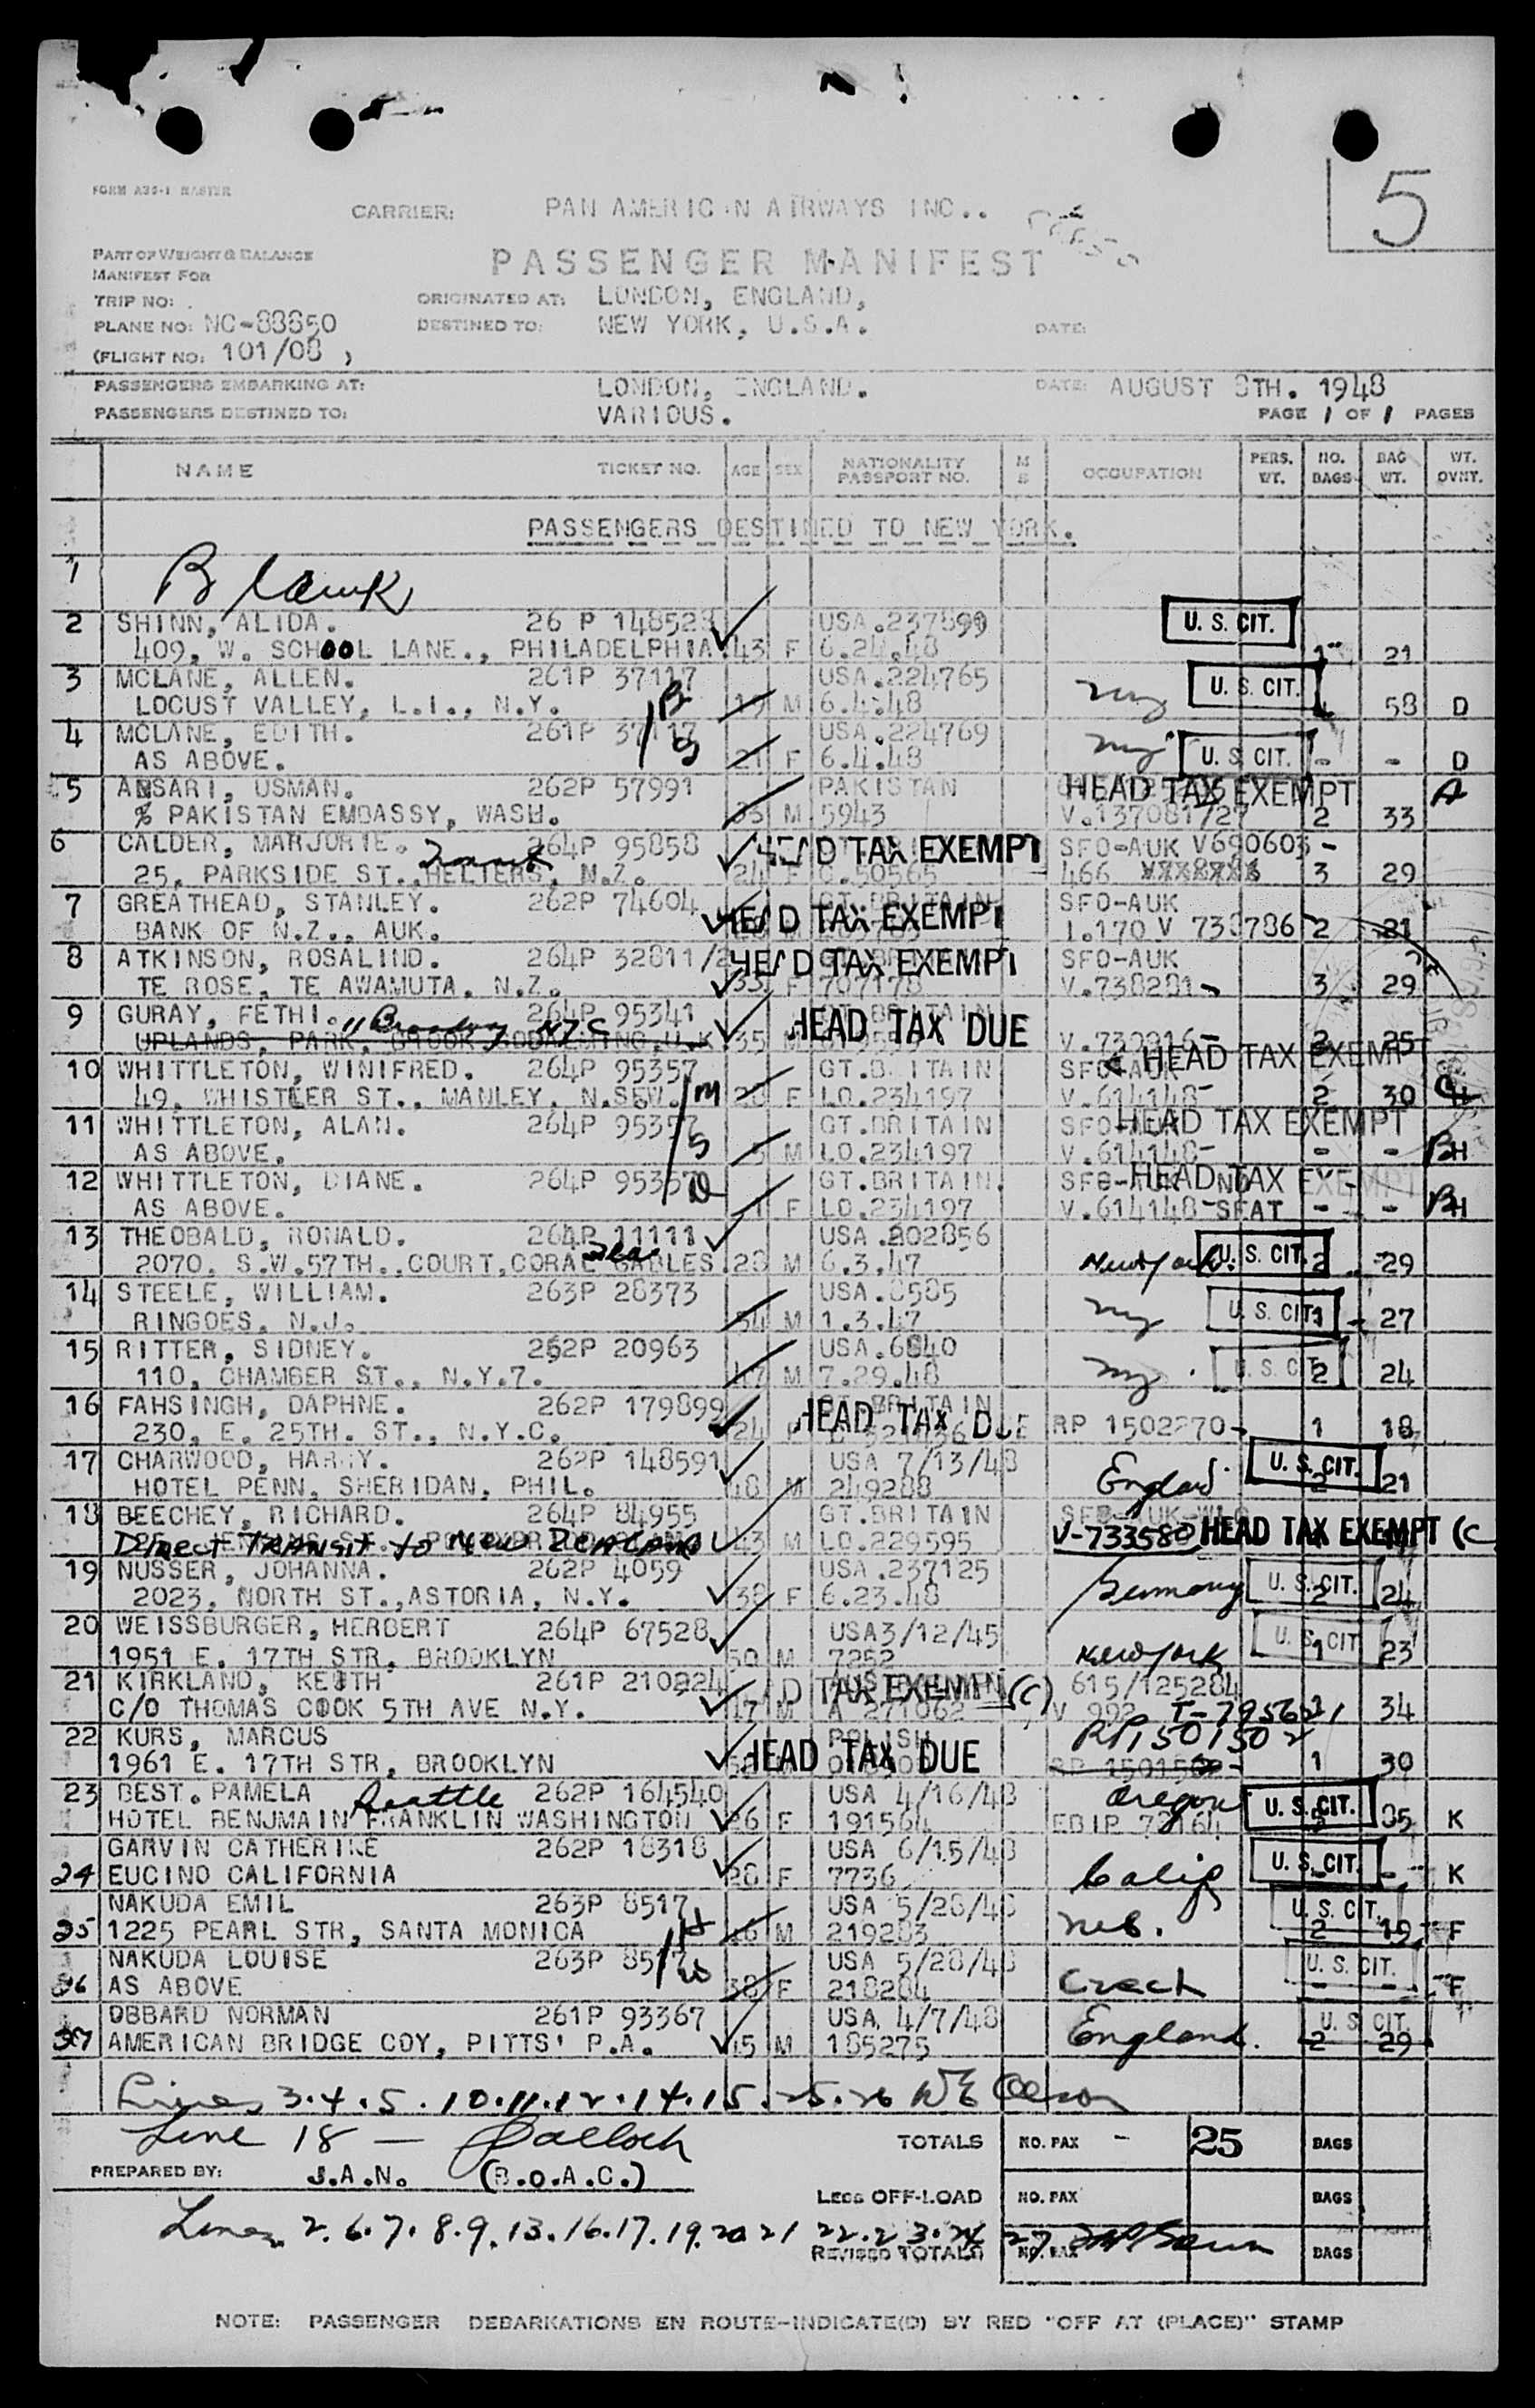 5
FORM A35-1 MASTER
CARRIER: PAN AMERICAN AIRWAYS INC..
PASSENGER MANIFEST
PART OF WEIGHT & BALANCE
MANIFEST FOR
TRIP NO:
ORIGINATED AT: LONDON, ENGLAND,
PLANE NO: NC-88850
DESTINED TO: NEW YORK, U.S.A. DATE:
(FLIGHT NO: 101/08 )
PASSENGERS EMBARKING AT: LONDON, ENGLAND. DATE: AUGUST 8TH. 1948
PASSENGERS DESTINED TO: VARIOUS. PAGE 1 OF 1 PAGES
NAME TICKET NO. AGE SEX NATIONALITY PASSPORT NO. M S OCCUPATION PERS. WT. NO. BAGS BAG WT. WT. OVNT.
PASSENGERS DESTINED TO NEW YORK.
1 Blank
2 SHINN, ALIDA. 26 P 148528 USA.237899 U. S. CIT.
409, W. SCHOOL LANE., PHILADELPHIA. 43 F 6.24.48 21
3 MCLANE, ALLEN. 261P 37117 USA.224765 U. S. CIT.
LOCUST VALLEY, L.I., N.Y. 19 M 6.4.48 NY 58 D
4 MCLANE, EDITH. 261P 37117 USA.224769 U. S. CIT.
AS ABOVE. 21 F 6.4.48 NY - - D
5 ANSARI, USMAN. 262P 57991 PAKISTAN HEAD TAX EXEMPT A
% PAKISTAN EMBASSY, WASH. 33 M 5943 V.137081/27 2 33
6 CALDER, MARJORIE. 264P 95858 HEAD TAX EXEMPT SFO-AUK V690603 -
25, PARKSIDE ST., Transit N.Z. 24 F C.50565 466 3 29
7 GREATHEAD, STANLEY. 262P 74604 GT.BRITAIN SFO-AUK
BANK OF N.Z., AUK. HEAD TAX EXEMPT 1.170 V 738786 2 21
8 ATKINSON, ROSALIND. 264P 32811/2 HEAD TAX EXEMPT SFO-AUK
TE ROSE, TE AWAMUTA, N.Z. 33 F 707178 V.738281 3 29
9 GURAY, FETHI. 264P 95341 HEAD TAX DUE
11 Broadway NYC
UPLANDS, PARK, 35 M 2 25
10 WHITTLETON, WINIFRED. 264P 95357 GT.BRITAIN SFO-AUK HEAD TAX EXEMPT
49, WHISTLER ST., MANLEY, N.SEW. M 28 F LO.234197 V.614148- 2 30
11 WHITTLETON, ALAN. 264P 95357 GT.BRITAIN SFO-AUK HEAD TAX EXEMPT
AS ABOVE. S 5 M LO.234197 V.614148- - - BH
12 WHITTLETON, DIANE. 264P 95357 GT.BRITAIN. SFO-AUK NO HEAD TAX EXEMPT
AS ABOVE. D 1 F LO.234197 V.614148-SEAT - - BH
13 THEOBALD, RONALD. 264P 11111 USA.202856
2070, S.W.57TH., COURT,CORAL GABLES. Fla. 28 M 6.3.47 New York. U. S. CIT. 2 29
14 STEELE, WILLIAM. 263P 28373 USA.8585
RINGOES, N.J. 54 M 1.3.47 NY U. S. CIT. 27
15 RITTER, SIDNEY. 262P 20963 USA.6840
110, CHAMBER ST., N.Y.7. 47 M 7.29.48 NY U. S. CIT. 2 24
16 FAHSINGH, DAPHNE. 262P 179899 GT.BRITAIN
230, E. 25TH. ST., N.Y.C. 24 F HEAD TAX DUE RP 1502270- 1 18
17 CHARWOOD, HARRY. 262P 148591 USA 7/13/48
HOTEL PENN, SHERIDAN, PHIL. 48 M 249288 England U. S. CIT. 2 21
18 BEECHEY, RICHARD. 264P 84955 GT.BRITAIN SFO-AUK-WLG
Direct TRANSIT to New Zealand 43 M LO.229595 V-733580 HEAD TAX EXEMPT (C
19 NUSSER, JOHANNA. 262P 4059 USA.237125
2023, NORTH ST.,ASTORIA, N.Y. 38 F 6.23.48 Germany U. S. CIT. 2 24
20 WEISSBURGER, HERBERT 264P 67528 USA3/12/45
1951 E. 17TH STR, BROOKLYN 50 M 7252 New York U. S. CIT 1 23
21 KIRKLAND, KEITH 261P 210224 HEAD TAX EXEMPT (C) 615/125284
C/O THOMAS COOK 5TH AVE N.Y. 47 M A 271062 V 992 T-795621 34
22 KURS, MARCUS POLISH RP1501502
1961 E. 17TH STR, BROOKLYN HEAD TAX DUE 1 30
23 BEST. PAMELA 262P 164540 USA 4/16/48 Oregon
Seattle
HOTEL BENJMAIN FRANKLIN WASHINGTON 26 F 191564 U. S. CIT. 35 K
GARVIN CATHERINE 262P 18318 USA 6/15/48
24 EUCINO CALIFORNIA 28 F 7736 Calif U. S. CIT. - K
NAKUDA EMIL 263P 8517 USA 5/28/48
25 1225 PEARL STR, SANTA MONICA H 46 M 219283 Neb. U. S. CIT. 2 19 F
NAKUDA LOUISE 263P 8517 USA 5/28/48
26 AS ABOVE W 38 F 218284 Czech U. S. CIT. - - F
OBBARD NORMAN 261P 93367 USA. 4/7/48
27 AMERICAN BRIDGE COY, PITTS' P.A. 45 M 185275 England. U. S. CIT. 2 29
Lines 3.4.5.10.11.12.14.15.25.26 WE Olson
Line 18 —
TOTALS NO. PAX - 25 BAGS
PREPARED BY: J.A.N. (B.O.A.C.)
LESS OFF-LOAD NO. PAX BAGS
Lines 2.6.7.8.9.13.16.17.19.20 21 22.23.24 27
REVISED TOTALS NO. PAX BAGS
NOTE: PASSENGER DEBARKATIONS EN ROUTE-INDICATE(D) BY RED "OFF AT (PLACE)" STAMP